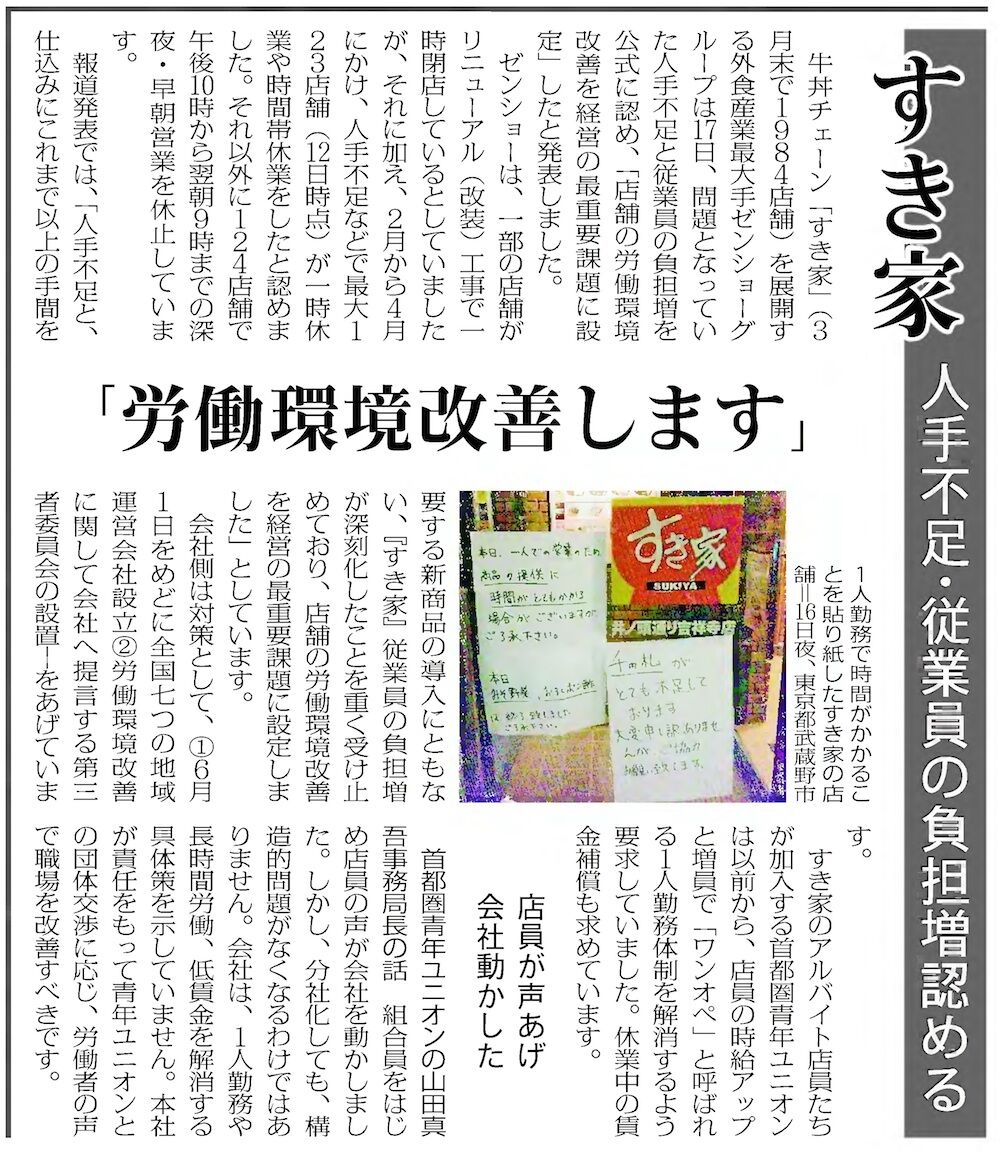 すき家
人手不足・従業員の負担増認める
「労働環境改善します」
牛丼チェーン「すき家」（3
月末で1984店舗）を展開す
る外食産業最大手ゼンショーグ
ループは17日、問題となってい
た人手不足と従業員の負担増を
公式に認め、「店舗の労働環境
改善を経営の最重要課題に設
定」したと発表しました。
ゼンショーは、一部の店舗が
リニューアル（改装）工事で一
時閉店しているとしていました
が、それに加え、2月から4月
にかけ、人手不足などで最大1
23店舗（12日時点）が一時休
業や時間帯休業をしたと認めま
した。それ以外に124店舗で
午後10時から翌朝9時までの深
夜・早朝営業を休止していま
す。
報道発表では、「人手不足と、
仕込みにこれまで以上の手間を
要する新商品の導入にともな
い、『すき家』従業員の負担増
が深刻化したことを重く受け止
めており、店舗の労働環境改善
を経営の最重要課題に設定しま
した」としています。
会社側は対策として、①6月
1日をめどに全国七つの地域
運営会社設立②労働環境改善
に関して会社へ提言する第三
者委員会の設置―をあげていま
す。
すき家
SUKIYA
井ノ頭通り吉祥寺店
本日、一人での営業のため
商品の提供に
時間がとてもかかる
場合がございますが
ご了承下さい。
本日
は終了致しました
ご了承下さい。
千円札が
とても不足して
おります
大変申し訳ありませ
んが、ご協力
お願い致します。
1人勤務で時間がかかるこ
とを貼り紙したすき家の店
舗＝16日夜、東京都武蔵野市
すき家のアルバイト店員たち
が加入する首都圏青年ユニオン
は以前から、店員の時給アップ
と増員で「ワンオペ」と呼ばれ
る1人勤務体制を解消するよう
要求していました。休業中の賃
金補償も求めています。
店員が声あげ
会社動かした
首都圏青年ユニオンの山田真
吾事務局長の話　組合員をはじ
め店員の声が会社を動かしまし
た。しかし、分社化しても、構
造的問題がなくなるわけではあ
りません。会社は、1人勤務や
長時間労働、低賃金を解消する
具体策を示していません。本社
が責任をもって青年ユニオンと
の団体交渉に応じ、労働者の声
で職場を改善すべきです。